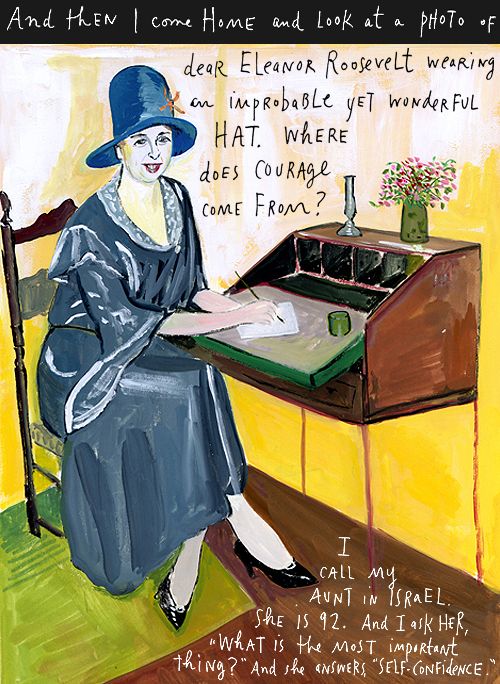 And then I come Home and look at a photo of
dear Eleanor Roosevelt wearing
an improbable yet wonderful
HAT. Where
does courage
come from?
I
call my
Aunt in Israel.
She is 92. And I ask Her,
"What is the most important
thing?" And she answers, "Self-Confidence."